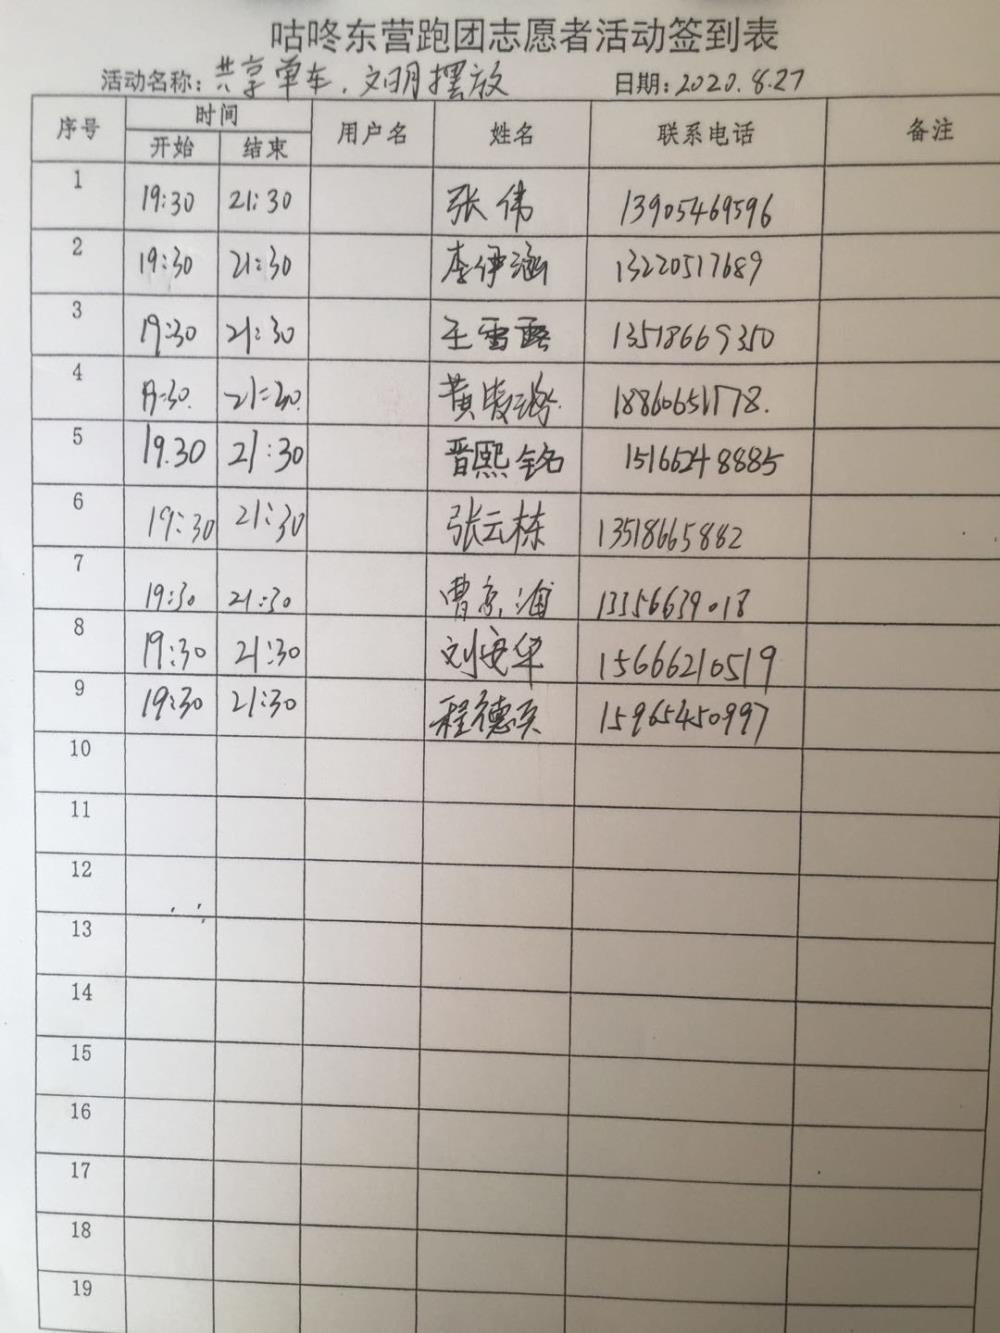 咕咚东营跑团志愿者活动签到表
活动名称：共享单车，文明摆放 日期：2020.8.27
序号 时间 用户名 姓名 联系电话 备注
开始 结束
1 19:30 21:30 张伟 13905469596
2 19:30 21:30 李伊涵 13220517689
3 19:30 21:30 王雷露 13518669350
4 19:30. 21:30. 黄 18860651778.
5 19.30 21:30 晋熙铭 15166248885
6 19:30 21:30 张云栋 13518665882
7 19:30 21:30 曹京 13356639018
8 19:30 21:30 刘安华 15666210519
9 19:30 21:30 程德 15965450997
10
11
12
13
14
15
16
17
18
19